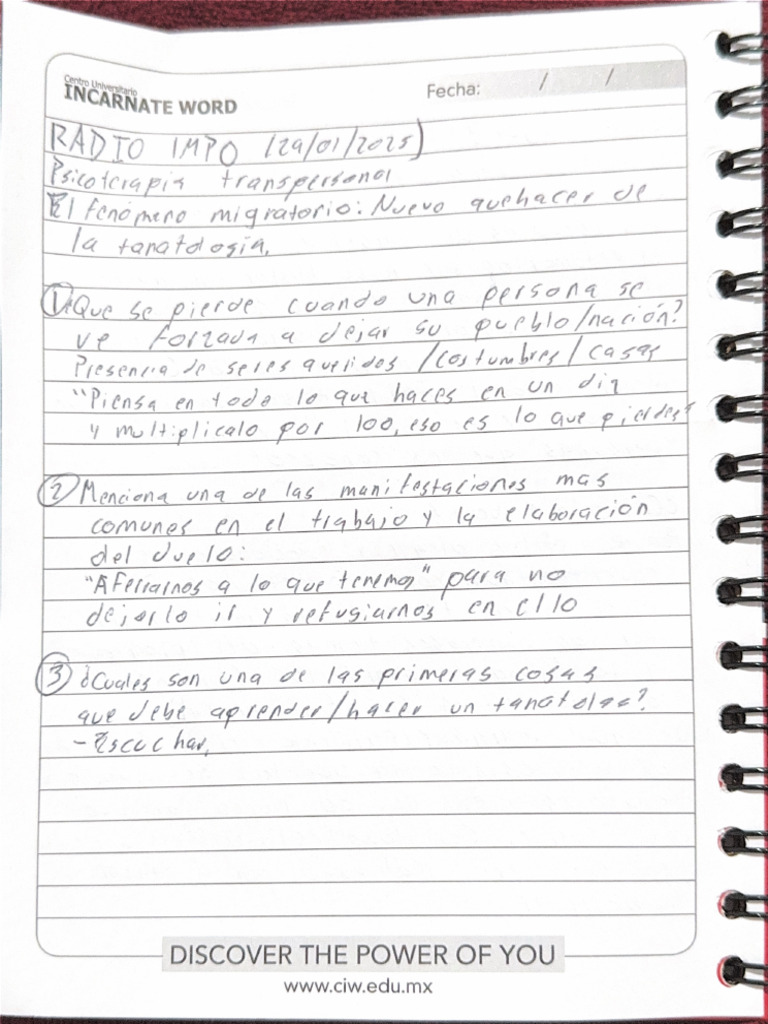 Centro Universitario
INCARNATE WORD
Fecha: / /
RADIO IMPO (29/01/2025)
Psicoterapia transpersonal
El fenómeno migratorio: Nuevo quehacer de
la tanatología.
① ¿Que se pierde cuando una persona se
ve forzada a dejar su pueblo/nación?
Presencia de seres queridos /costumbres/casas
"Piensa en todo lo que haces en un dia
y multiplicalo por 100, eso es lo que pierdes"
② Menciona una de las manifestaciones mas
comunes en el trabajo y la elaboración
del duelo:
"Aferrarnos a lo que tenemos" para no
dejarlo ir y refugiarnos en ello
③ ¿Cuales son una de las primeras cosas
que debe aprender/hacer un tanatologo?
- Escuchar.
DISCOVER THE POWER OF YOU
www.ciw.edu.mx